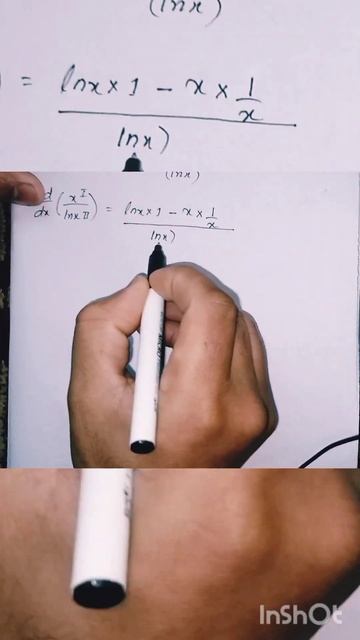 (lnx)
= lnx × 1 - x × 1/x
lnx)
(lnx)
d/dx (x I / lnx II) = lnx × 1 - x × 1/x
lnx)
InShOt